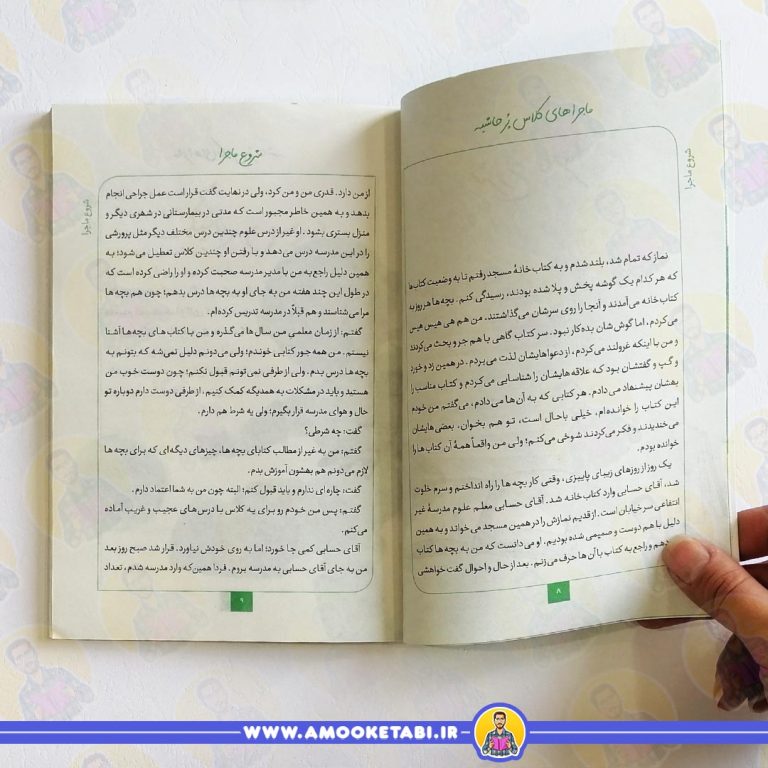 ماجراهای کلاس پرحاشیه
شروع ماجرا
نماز که تمام شد، بلند شدم و به کتاب خانهٔ مسجد رفتم تا به وضعیت کتاب‌ها
که هر کدام یک گوشه پخش و پلا شده بودند، رسیدگی کنم. بچه‌ها هر روز به
کتاب خانه می‌آمدند و آنجا را روی سرشان می‌گذاشتند. من هم هی هیس هیس
می‌کردم، اما گوش‌شان بده‌کار نبود. سر کتاب گاهی با هم جر و بحث می‌کردند
و من با اینکه غرولند می‌کردم، از دعواهایشان لذت می‌بردم. در همین زد و خورد
و گپ و گفتشان بود که علاقه‌هایشان را شناسایی می‌کردم و کتاب مناسب را
بهشان پیشنهاد می‌دادم. هر کتابی که به آن‌ها می‌دادم، می‌گفتم من خودم
این کتاب را خوانده‌ام، خیلی باحال است، تو هم بخوان. بعضی‌هایشان
می‌خندیدند و فکر می‌کردند شوخی می‌کنم؛ ولی من واقعاً همهٔ آن کتاب‌ها را
خوانده بودم.
یک روز از روزهای زیبای پاییزی، وقتی کار بچه‌ها را راه انداختم و سرم خلوت
شد، آقای حسابی وارد کتاب خانه شد. آقای حسابی معلم علوم مدرسهٔ غیر
انتفاعی سر خیابان است. از قدیم نمازش را در همین مسجد می‌خواند و به همین
دلیل با هم دوست و صمیمی شده بودیم. او می‌دانست که من به بچه‌ها کتاب
دهم و راجع به کتاب با آن‌ها حرف می‌زنم. بعد از حال و احوال گفت خواهشی
۸
شروع ماجرا
شروع ماجرا
از من دارد. قدری من و من کرد، ولی در نهایت گفت قرار است عمل جراحی انجام
بدهد و به همین خاطر مجبور است که مدتی در بیمارستانی در شهری دیگر و
منزل بستری بشود. او غیر از درس علوم چندین درس مختلف دیگر مثل پرورشی
را در این مدرسه درس می‌دهد و با رفتن او چندین کلاس تعطیل می‌شود؛ به
همین دلیل راجع به من با مدیر مدرسه صحبت کرده و او را راضی کرده است که
در طول این چند هفته من به جای او به بچه‌ها درس بدهم؛ چون هم بچه‌ها
مرا می‌شناسند و هم قبلاً در مدرسه تدریس کرده‌ام.
گفتم: از زمان معلمی من سال‌ها می‌گذره و من با کتاب‌های بچه‌ها آشنا
نیستم. من همه جور کتابی خوندم؛ ولی می‌دونم دلیل نمی‌شه که بتونم به
بچه‌ها درس بدم. ولی از طرفی نمی‌تونم قبول نکنم؛ چون دوست خوب من
هستید و باید در مشکلات به همدیگه کمک کنیم. از طرفی دوست دارم دوباره تو
حال و هوای مدرسه قرار بگیرم؛ ولی یه شرط هم دارم.
گفت: چه شرطی؟
گفتم: من به غیر از مطالب کتابای بچه‌ها، چیزهای دیگه‌ای که برای بچه‌ها
لازم می‌دونم هم بهشون آموزش بدم.
گفت: چاره‌ای ندارم و باید قبول کنم؛ البته چون من به شما اعتماد دارم.
گفتم: پس من خودم رو برای یه کلاس با درس‌های عجیب و غریب آماده
می‌کنم.
آقای حسابی کمی جا خورد؛ اما به روی خودش نیاورد. قرار شد صبح روز بعد
من به جای آقای حسابی به مدرسه بروم. فردا همین‌که وارد مدرسه شدم، تعداد
۹
WWW.AMOOKETABI.IR